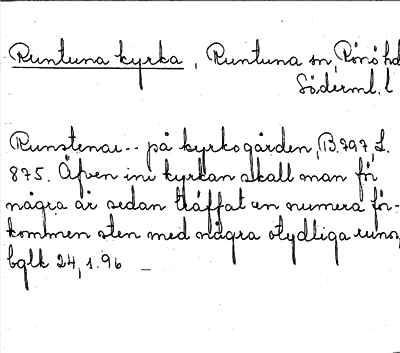 Runtuna kyrka, Runtuna sn, Rönö hd
Söderml. l
Runstenar -- på kyrkogården, B.797, L.
875. Äfven ini kyrkan skall man för
några år sedan träffat en numera för-
kommen sten med några otydliga runor,
bglk 24, 1.96 –